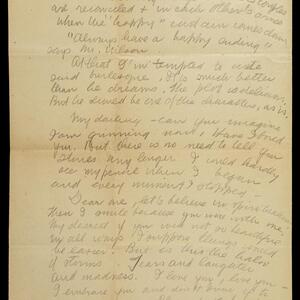 are reconciled & in each other's arms
when the "happy" curtain comes down
"Always have a happy ending"
says Mr. Wilson.
At that I'm tempted to write
said burlesque, it is much better
than he dreams, the plot is delicious,
But he
My darling - can you imagine
I am grinning now, have I bored
you. But there is no need to tell you
stories any longer I could hardly
see my pencil when I began
and every minute I stopped -
Dear me, let's believe in spiritualism
Then I smile because you were with me,
My dearest if you were not so beautiful
in all ways I suppose things would
be easier. But as this the
of storms. Tears and laughter
and madness. I love you I love you -
I embrace you and don't